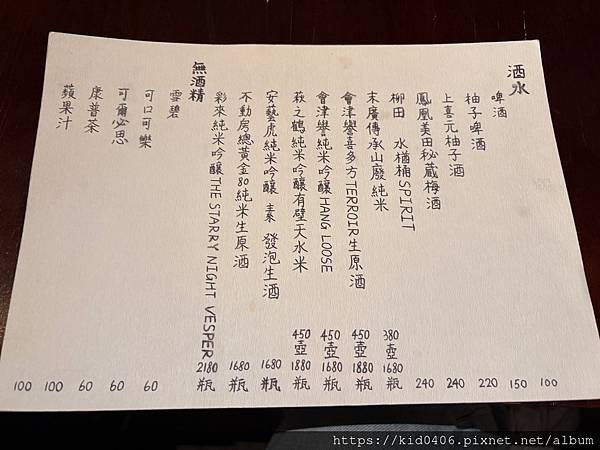 酒水
啤酒 100
柚子啤酒 150
上喜元柚子酒 220
鳳凰美田秘蔵梅酒 240
柳田 水楢桶 SPIRIT 240
末廣傳承山廢純米 380壺 1680瓶
會津譽喜多方TERROIR生原酒 450壺 1880瓶
會津譽純米吟釀HANG LOOSE 450壺 1680瓶
萩之鶴純米吟釀有壁天水米 450壺 1880瓶
安藝虎純米吟釀 素 發泡生酒 1680瓶
不動房總黃金80純米生原酒 1680瓶
彩來純米吟釀THE STARRY NIGHT VESPER 2180瓶
無酒精
雪碧 60
可口可樂 60
可爾必思 60
康普茶 100
蘋果汁 100
https://kid0406.pixnet.net/album